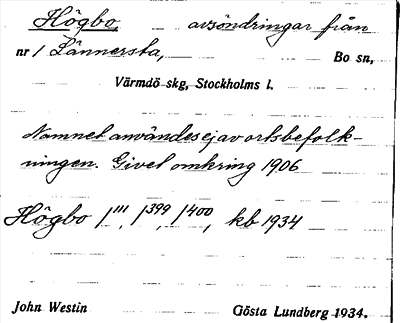 Högbo, avsöndringar från
nr 1 Lännersta, Bo sn,
Värmdö skg, Stockholms l.
Namnet användes ej av ortsbefolk-
ningen. Givet omkring 1906
Högbo 1¹¹¹, 1³⁹⁹, 1⁴⁰⁰, kb 1934
John Westin Gösta Lundberg 1934.